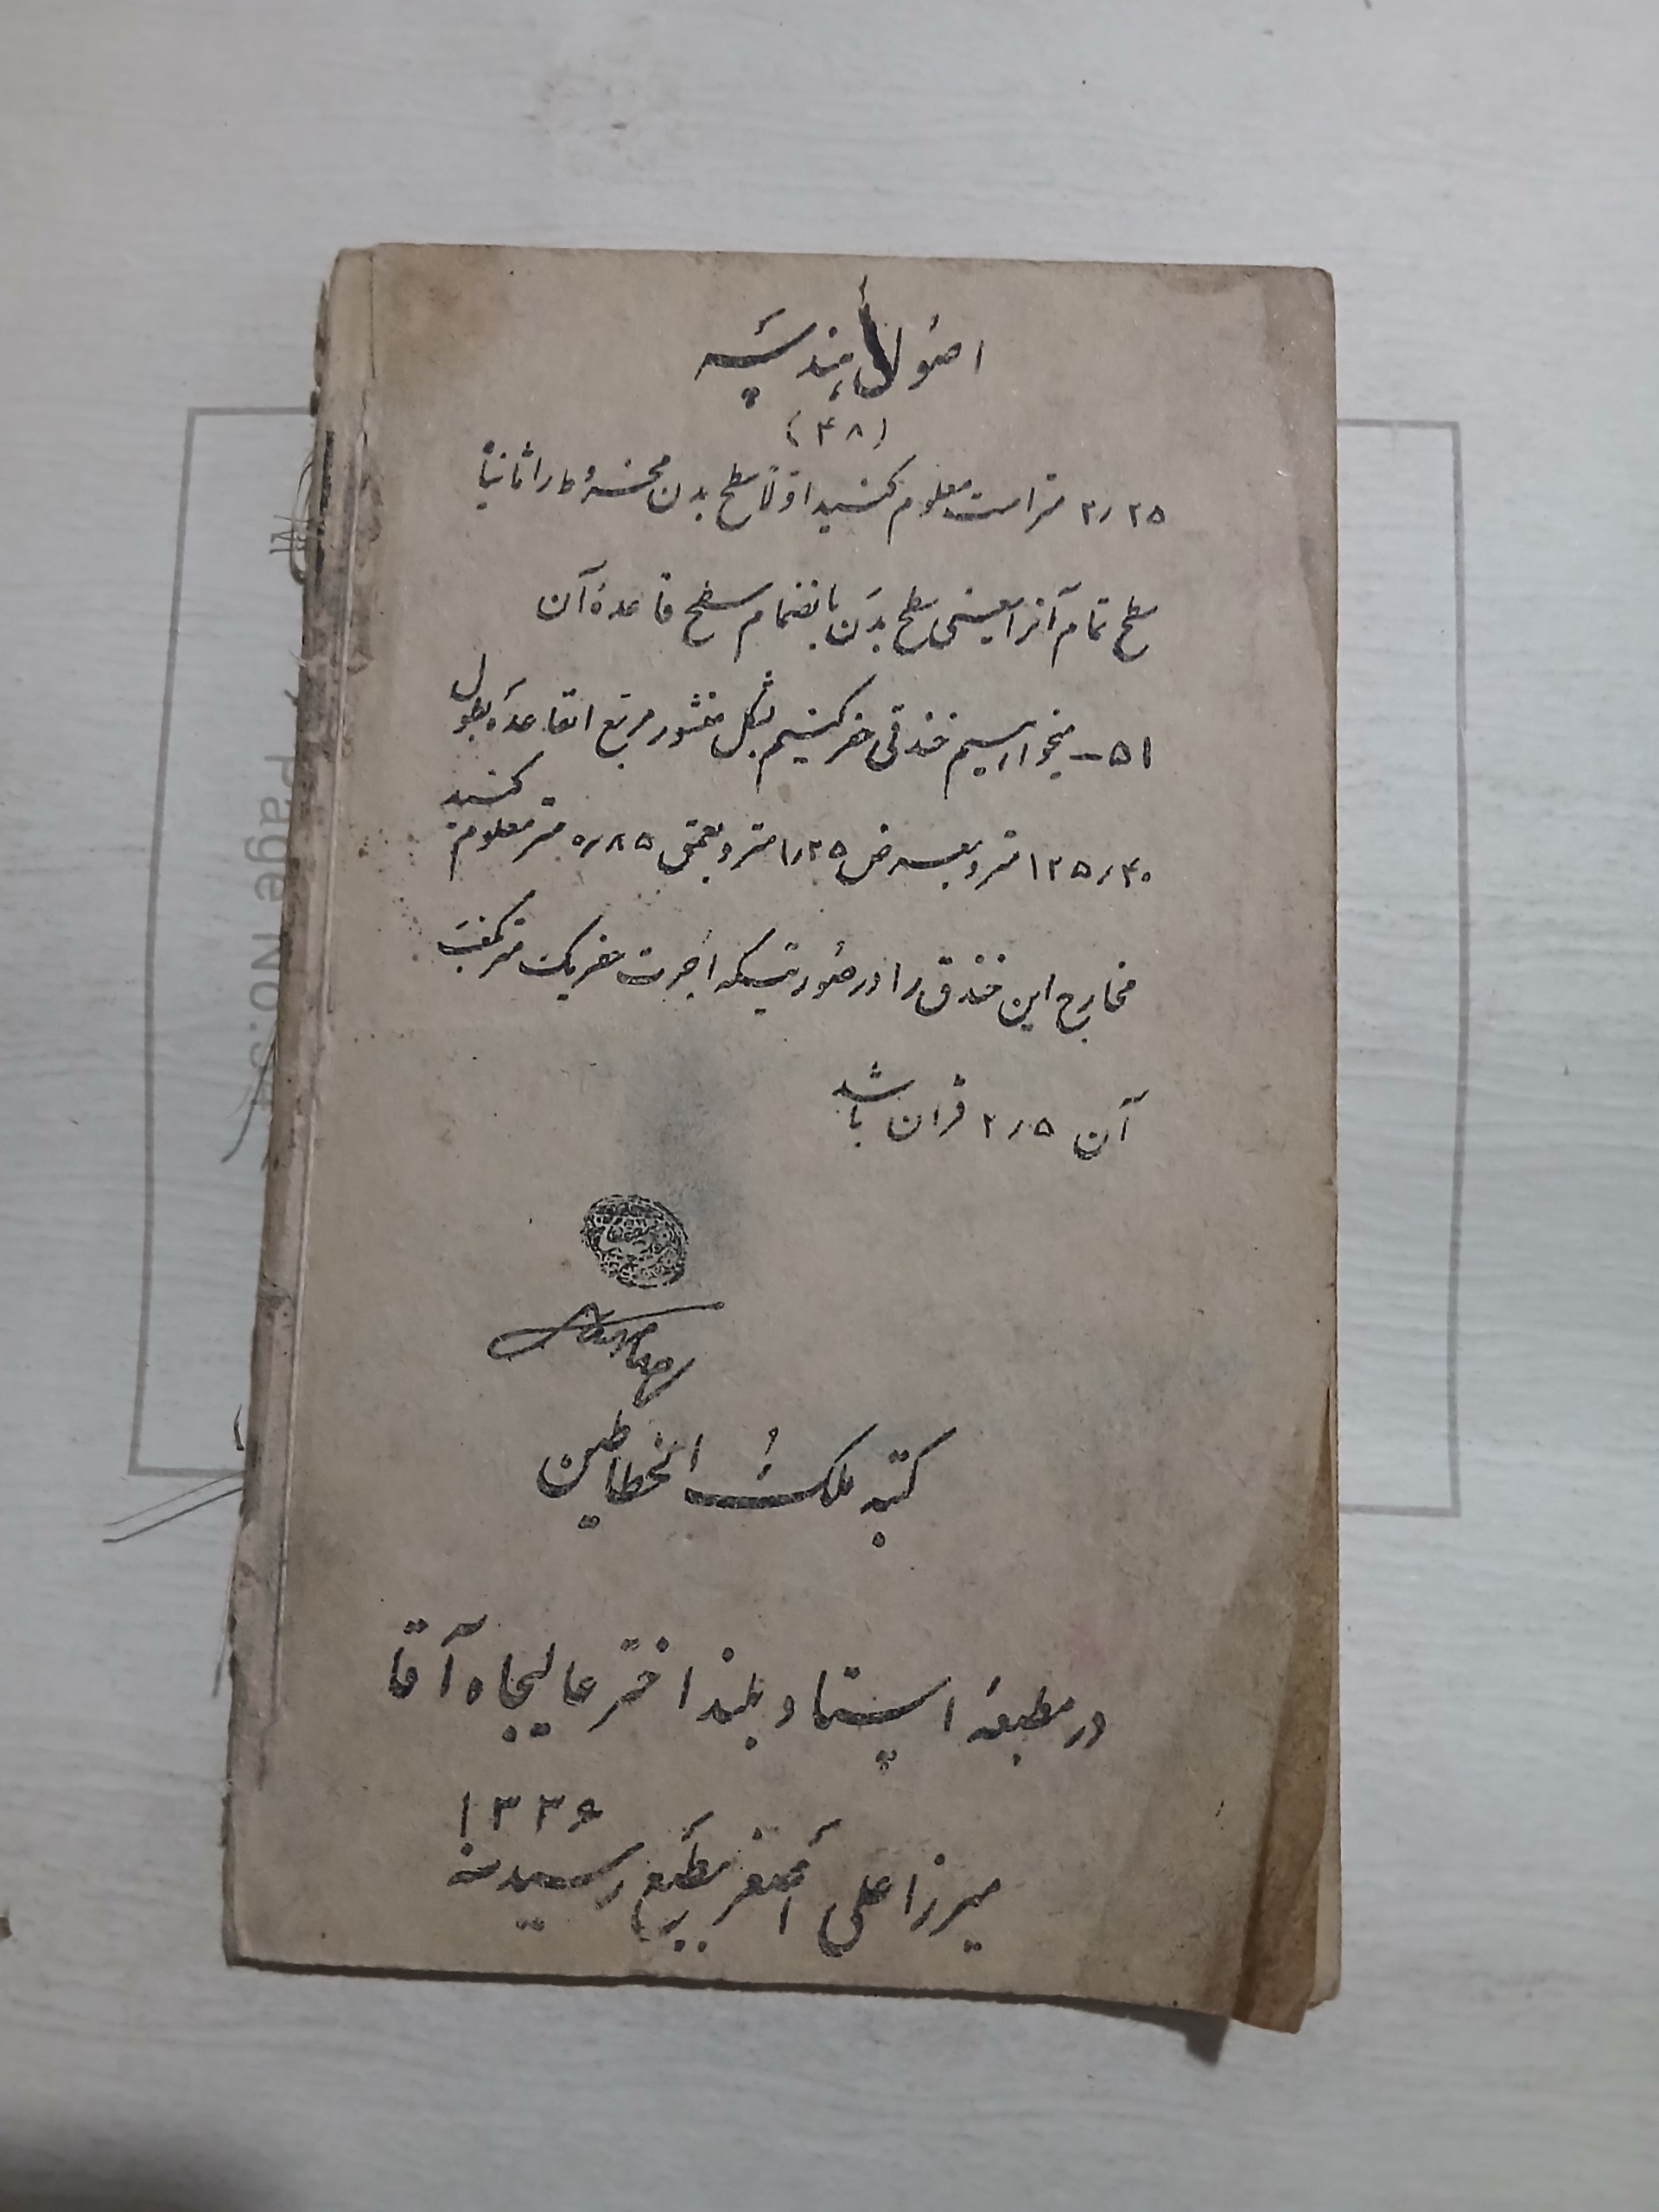 اصول هندسه
(۴۸)
۲٫۲۵ متر است معلوم کنید اولاً سطح بدن مخروط را ثانیاً
سطح تمام آنرا یعنی سطح بدن بانضمام سطح قاعدهٔ آن
۵۱ــ میخواهیم خندقی حفر کنیم بشکل منشور مربع القاعده بطول
۱۲۵٫۴۰ متر و بعرض ۱٫۲۵ متر و بعمق ۰٫۸۵ متر معلوم کنید
مخارج این خندق را در صورتیکه اجرت حفر یک متر مکعب
آن ۲٫۵ قران باشد
کتبه ملک الخطاطین
در مطبعهٔ استاد بلند اختر عالیجاه آقا
میرزا علی اصغر بطبع رسید سنه ۱۳۳۶
Page No.